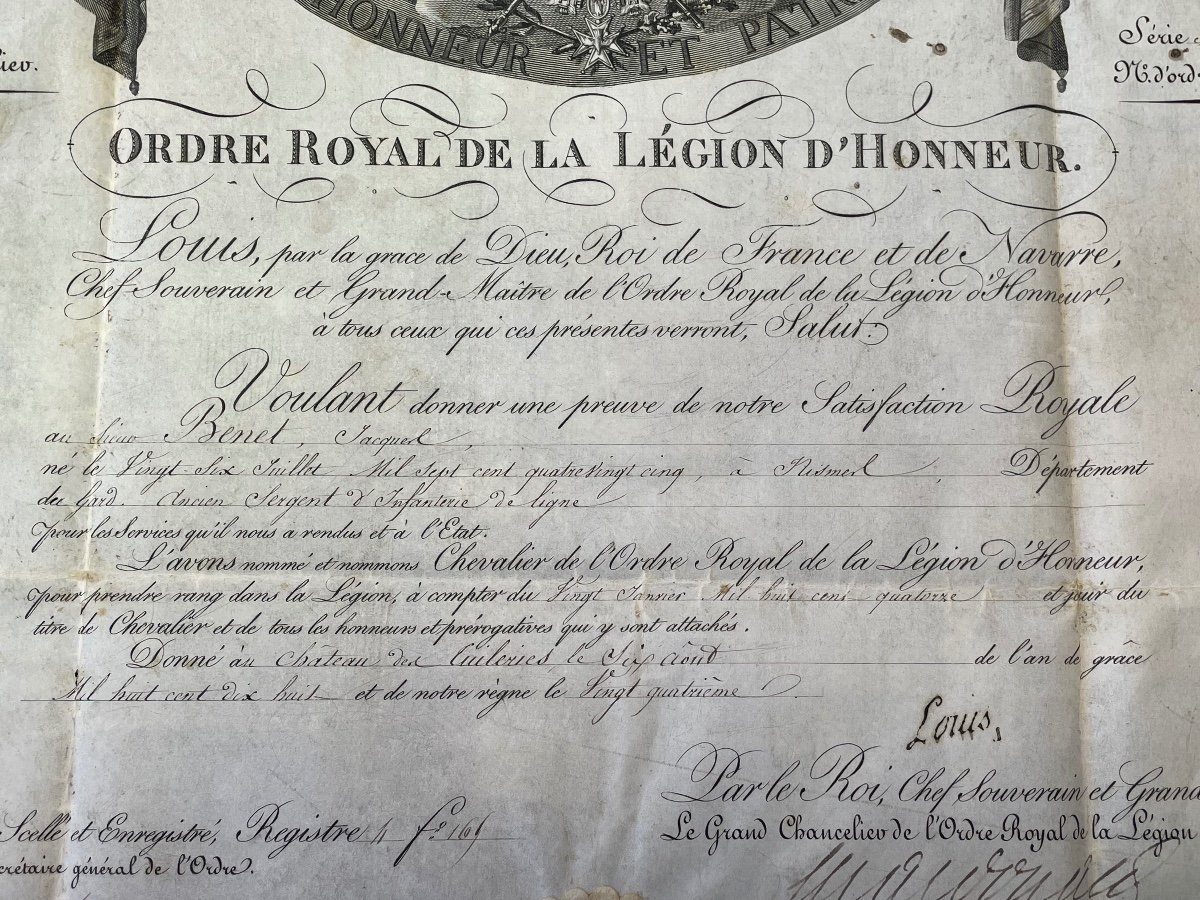 HONNEUR ET PATRI
Série
N.º d'ord
ORDRE ROYAL DE LA LÉGION D'HONNEUR.
Louis, par la grace de Dieu, Roi de France et de Navarre,
Chef Souverain et Grand-Maître de l'Ordre Royal de la Légion d'Honneur,
à tous ceux qui ces présentes verront, Salut.
Voulant donner une preuve de notre Satisfaction Royale
au Sieur Benet, Jacques,
né le Vingt Six Juillet Mil Sept cent quatrevingt cinq, à , Département
du Gard. Ancien Sergent d'Infanterie de ligne
pour les Services qu'il nous a rendus et à l'Etat.
L'avons nommé et nommons Chevalier de l'Ordre Royal de la Légion d'Honneur,
pour prendre rang dans la Légion, à compter du Vingt Janvier Mil huit cent quatorze et jouir du
titre de Chevalier et de tous les honneurs et prérogatives qui y sont attachés.
Donné au Château des Tuileries le Six Août de l'an de grâce
Mil huit cent dix huit et de notre règne le Vingt quatrième.
Louis.
Par le Roi, Chef Souverain et Grand
Le Grand Chancelier de l'Ordre Royal de la Légion
Scellé et Enregistré, Registre 4 fº
crétaire général de l'Ordre.